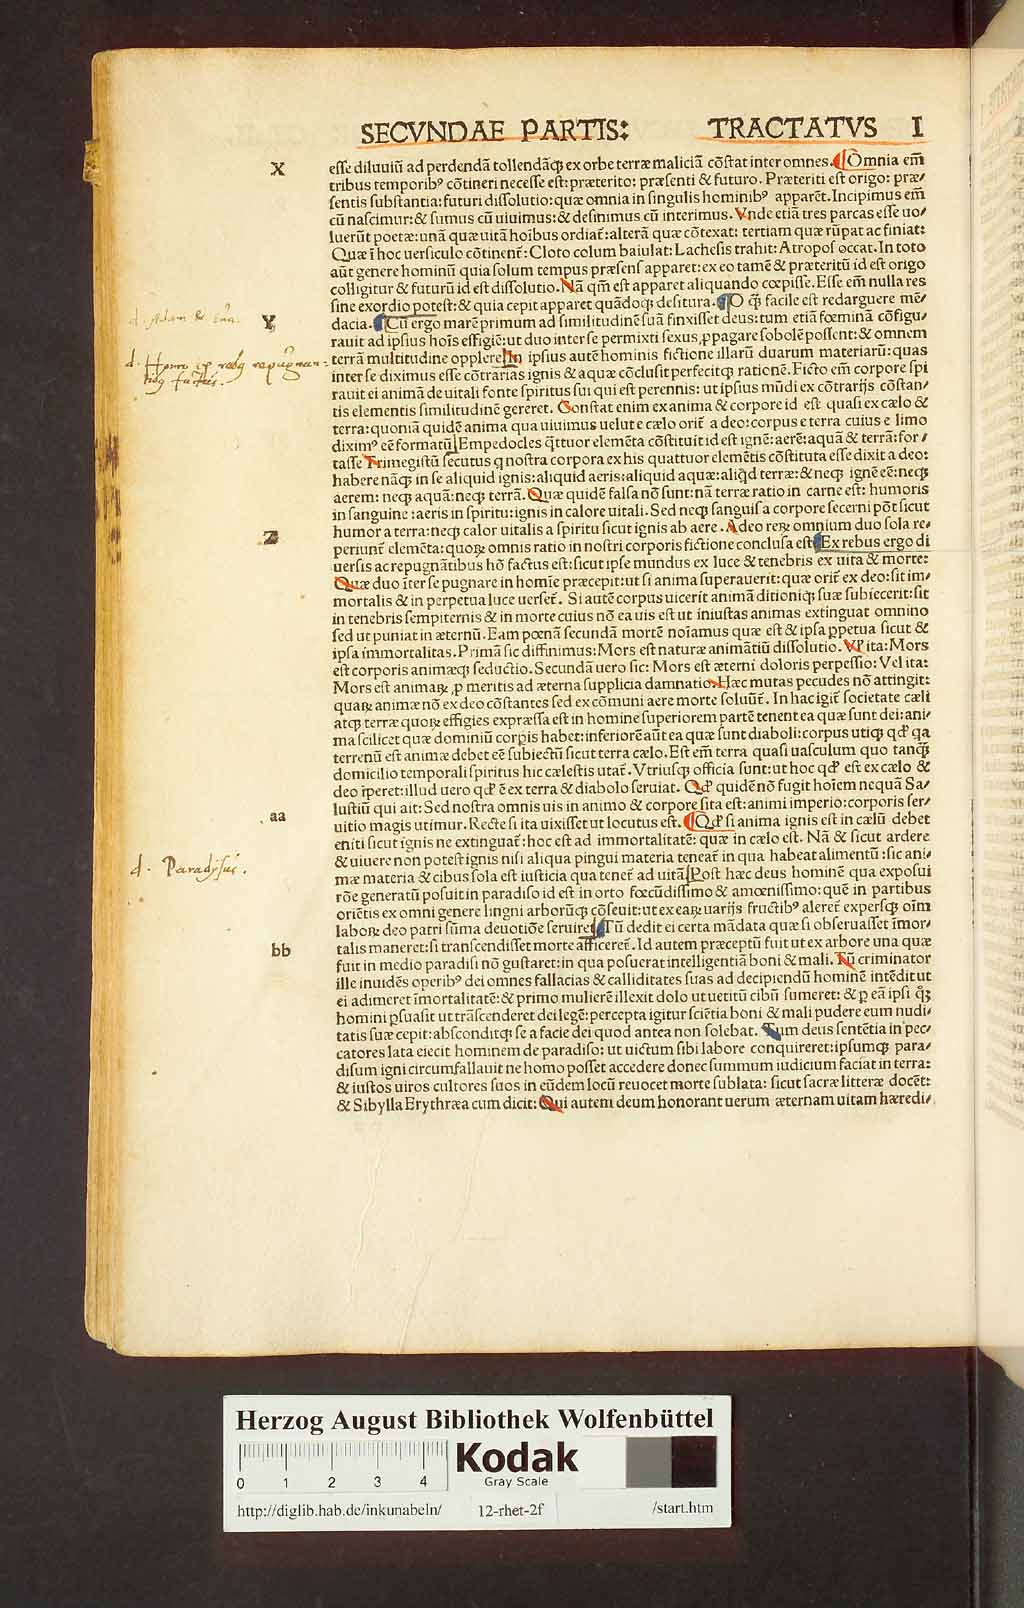 SECVNDAE PARTIS: TRACTATVS I
X
esse diluuiū ad perdendā tollendāq; ex orbe terræ maliciā cōstat inter omnes. Omnia em̄
tribus temporib⁹ cōtineri necesse est: præterito: præsenti & futuro. Præteriti est origo: præ/
sentis substantia: futuri dissolutio: quæ omnia in singulis hominib⁹ apparēt. Incipimus em̄
cū nascimur: & sumus cū uiuimus: & desinimus cū interimus. Vnde etiā tres parcas esse uo/
luerūt poetæ: unā quæ uitā hoībus ordiat̄: alterā quæ cōtexat: tertiam quæ rūpat ac finiat:
Quæ ī hoc uersiculo cōtinent̄: Cloto colum baiulat: Lachesis trahit: Atropos occat. In toto
aūt genere hominū quia solum tempus præsens apparet: ex eo tamē & præteritū id est origo
colligitur & futurū id est dissolutio. Nā qm̄ est apparet aliquando cœpisse. Esse em̄ nulla res
sine exordio potest: & quia cepit apparet quādoq; desitura. O q̄ facile est redarguere mē/
Y
dacia. Cū ergo marē primum ad similitudinē suā finxisset deus: tum etiā fœminā cōfigu/
d. Adam & Eua.
rauit ad ipsius hoīs effigiē: ut duo inter se permixti sexus, ꝓpagare sobolē possent: & omnem
terrā multitudine opplere. In ipsius autē hominis fictione illarū duarum materiarū: quas
d. Homo ex rebꝰ repugnan-
tibꝰ factus.
inter se diximus esse cōtrarias ignis & aquæ cōclusit perfecitq; rationē. Ficto em̄ corpore spi
rauit ei animā de uitali fonte spiritus sui qui est perennis: ut ipsius mūdi ex cōtrarijs cōstan/
tis elementis similitudinē gereret. Constat enim ex anima & corpore id est quasi ex cælo &
terra: quoniā quidē anima qua uiuimus uelut e cælo orit̄ a deo: corpus e terra cuius e limo
dixim⁹ eē formatū. Empedocles q̄ttuor elemēta cōstituit id est ignē: aerē: aquā & terrā: for/
tasse Trimegistū secutus q nostra corpora ex his quattuor elemētis cōstituta esse dixit a deo:
habere nāq; in se aliquid ignis: aliquid aeris: aliquid aquæ: aliq̄d terræ: & neq; ignē eē: neq;
aerem: neq; aquā: neq; terrā. Quæ quidē falsa nō sunt: nā terræ ratio in carne est: humoris
in sanguine: aeris in spiritu: ignis in calore uitali. Sed neq; sanguis a corpore secerni pōt sicut
humor a terra: neq; calor uitalis a spiritu sicut ignis ab aere. Adeo reꝝ omnium duo sola re/
Z
periunt̄ elemēta: quoꝝ omnis ratio in nostri corporis fictione conclusa est. Ex rebus ergo di
uersis ac repugnātibus hō factus est: sicut ipse mundus ex luce & tenebris ex uita & morte:
Quæ duo īter se pugnare in homīe præcepit: ut si anima superauerit: quæ orit̄ ex deo: sit im/
mortalis & in perpetua luce uerset̄. Si autē corpus uicerit animā ditioniq; suæ subiecerit: sit
in tenebris sempiternis & in morte cuius nō ea uis est ut iniustas animas extinguat omnino
sed ut puniat in æternū. Eam pœnā secundā mortē noīamus quæ est & ipsa ꝑpetua sicut &
ipsa immortalitas. Primā sic diffinimus: Mors est naturæ animātiū dissolutio. Vl' ita: Mors
est corporis animæq; seductio. Secundā uero sic: Mors est æterni doloris perpessio: Vel ita:
Mors est animaꝝ ꝓ meritis ad æterna supplicia damnatio. Hæc mutas pecudes nō attingit:
quaꝝ animæ nō ex deo cōstantes sed ex cōmuni aere morte soluūt̄. In hac igit̄ societate cæli
atq; terræ quoꝝ effigies expræssa est in homine superiorem partē tenent ea quæ sunt dei: ani/
ma scilicet quæ dominiū corpis habet: inferiorē aūt ea quæ sunt diaboli: corpus utiq; qd' qa
terrenū est animæ debet eē subiectū sicut terra cælo. Est em̄ terra quasi uasculum quo tanq̄
domicilio temporali spiritus hic cælestis utat̄. Vtriusq; officia sunt: ut hoc qd' est ex cælo &
deo īperet: illud uero qd' ē ex terra & diabolo seruiat. Qd' quidē nō fugit hoīem nequā Sa/
lustiū qui ait: Sed nostra omnis uis in animo & corpore sita est: animi imperio: corporis ser/
aa
uitio magis utimur. Recte si ita uixisset ut locutus est. Qd' si anima ignis est in cælū debet
eniti sicut ignis ne extinguat̄: hoc est ad immortalitatē: quæ in cælo est. Nā & sicut ardere
& uiuere non potest ignis nisi aliqua pingui materia teneat̄ in qua habeat alimentū: sic ani/
d. Paradysus.
mæ materia & cibus sola est iusticia qua tenet̄ ad uitā. Post hæc deus hominē qua exposui
rōe generatū posuit in paradiso id est in orto fœcūdissimo & amœnissimo: quē in partibus
oriētis ex omni genere lingni arborūq; cōseuit: ut ex eaꝝ uarijs fructib⁹ aleret̄ expersq; oīm
laboꝝ deo patri sūma deuotiōe seruiret. Tū dedit ei certa mādata quæ si obseruasset īmor/
bb
talis maneret: si transcendisset morte afficeret̄. Id autem præceptū fuit ut ex arbore una quæ
fuit in medio paradisi nō gustaret: in qua posuerat intelligentiā boni & mali. Tū criminator
ille inuidēs operib⁹ dei omnes fallacias & calliditates suas ad decipiendū hominē intēdit ut
ei adimeret īmortalitatē: & primo mulierē illexit dolo ut uetitū cibū sumeret: & ꝑ eā ipsi q̄ꝫ
homini ꝑsuasit ut trāscenderet dei legē: percepta igitur sciētia boni & mali pudere eum nudi/
tatis suæ cepit: absconditq; se a facie dei quod antea non solebat. Tum deus sentētia in pec/
catores lata eiecit hominem de paradiso: ut uictum sibi labore conquireret: ipsumq; para/
disum igni circumfallauit ne homo posset accedere donec summum iudicium faciat in terra:
& iustos uiros cultores suos in eūdem locū reuocet morte sublata: sicut sacræ litteræ docēt:
& Sibylla Erythræa cum dicit: Qui autem deum honorant uerum æternam uitam hæredi/
Herzog August Bibliothek Wolfenbüttel
0 1 2 3 4
Kodak
Gray Scale
http://diglib.hab.de/inkunabeln/ 12-rhet-2f /start.htm